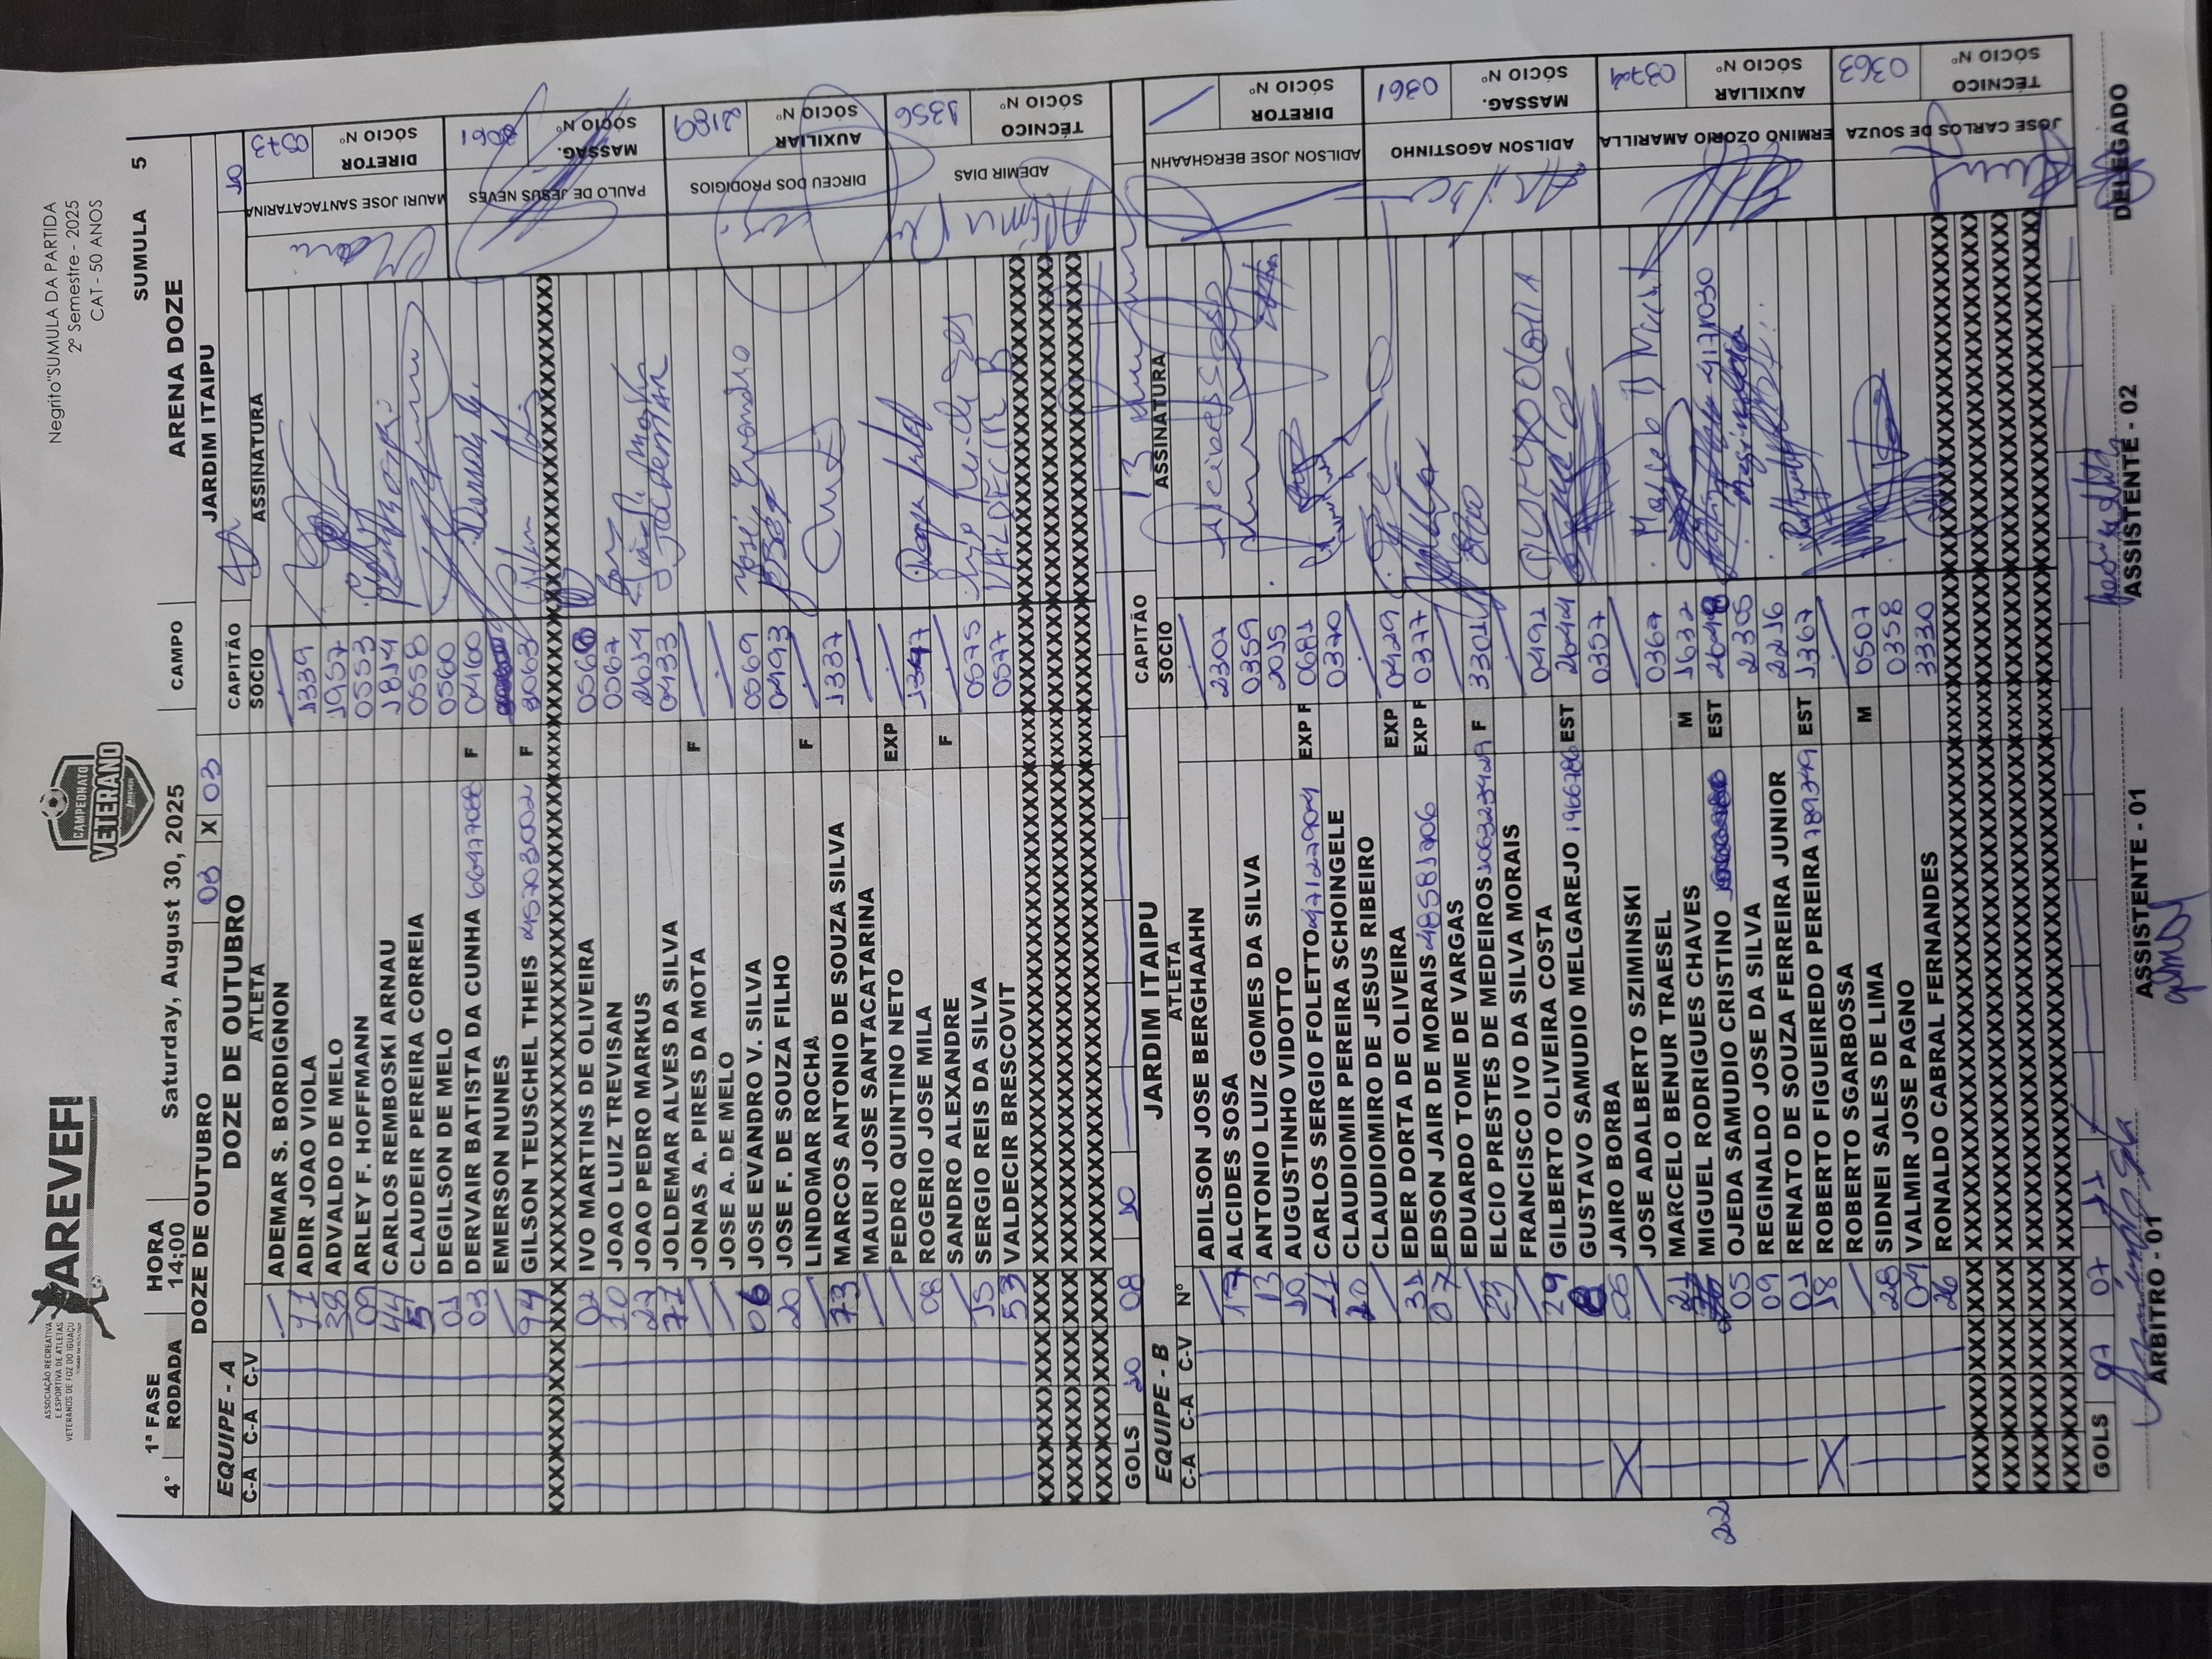 AREVEFI
ASSOCIAÇÃO RECREATIVA
E ESPORTIVA DE ATLETAS
VETERANOS DE FOZ DO IGUAÇU
CAMPEONATO
VETERANO
Negrito"SUMULA DA PARTIDA
2º Semestre - 2025
CAT - 50 ANOS
1ª FASE HORA Saturday, August 30, 2025 CAMPO ARENA DOZE SUMULA 5
4° RODADA 14:00
DOZE DE OUTUBRO 03 X 03 JARDIM ITAIPU
EQUIPE - A DOZE DE OUTUBRO CAPITÃO
C-A C-A C-V ATLETA SOCIO ASSINATURA
ADEMAR S. BORDIGNON
ADIR JOAO VIOLA 1339
ADVALDO DE MELO 1957
09 ARLEY F. HOFFMANN 0553
44 CARLOS REMBOSKI ARNAU 1814
5 CLAUDEIR PEREIRA CORREIA 0558
01 DEGILSON DE MELO 0560
03 DERVAIR BATISTA DA CUNHA 66477088 F 0460
EMERSON NUNES
94 GILSON TEUSCHEL THEIS 45703002 F 3063
XXXXXXXXXXXXXXXXXXXXXXXXXXXXXX
02 IVO MARTINS DE OLIVEIRA 0566
10 JOAO LUIZ TREVISAN 0567
27 JOAO PEDRO MARKUS 2654
77 JOLDEMAR ALVES DA SILVA 0433 JOLDEMAR
JONAS A. PIRES DA MOTA F
JOSE A. DE MELO
06 JOSE EVANDRO V. SILVA 0569 José Evandro
20 JOSE F. DE SOUZA FILHO 0493
LINDOMAR ROCHA F
73 MARCOS ANTÔNIO DE SOUZA SILVA 1337
MAURI JOSE SANTACATARINA
PEDRO QUINTINO NETO EXP
08 ROGERIO JOSE MILA 1347
SANDRO ALEXANDRE F
15 SERGIO REIS DA SILVA 0575
53 VALDECIR BRESCOVIT 0577 VALDECIR B
MAURI JOSE SANTACATARINA DIRETOR SÓCIO Nº 0573
PAULO DE JESUS NEVES MASSAG. SÓCIO Nº 3061
DIRCEU DOS PRODIGIOS AUXILIAR SÓCIO Nº 2189
ADEMIR DIAS TÉCNICO SÓCIO Nº 1356
GOLS 20 08 10
EQUIPE - B JARDIM ITAIPU CAPITÃO 13
C-A C-A C-V Nº ATLETA SOCIO ASSINATURA
ADILSON JOSE BERGHAAHN
17 ALCIDES SOSA 2307
13 ANTONIO LUIZ GOMES DA SILVA 0359
10 AUGUSTINHO VIDOTTO 2015
11 CARLOS SERGIO FOLETTO 4712790-4 EXP F 0681
20 CLAUDIOMIR PEREIRA SCHOINGELE 0370
CLAUDIOMIRO DE JESUS RIBEIRO
31 EDER DORTA DE OLIVEIRA EXP 0429
07 EDSON JAIR DE MORAIS 48581706 EXP F 0377
EDUARDO TOME DE VARGAS
23 ELCIO PRESTES DE MEDEIROS F 3301
FRANCISCO IVO DA SILVA MORAIS
29 GILBERTO OLIVEIRA COSTA 0492
8 GUSTAVO SAMUDIO MELGAREJO EST 2644
X 06 JAIRO BORBA 0357
JOSE ADALBERTO SZIMINSKI
21 MARCELO BENUR TRAESEL 0367
22 MIGUEL RODRIGUES CHAVES M 1632
05 OJEDA SAMUDIO CRISTINO EST
09 REGINALDO JOSE DA SILVA 2305
01 RENATO DE SOUZA FERREIRA JUNIOR 2216
X 18 ROBERTO FIGUEIREDO PEREIRA EST 1367
ROBERTO SGARBOSSA
28 SIDNEI SALES DE LIMA M 0507
04 VALMIR JOSE PAGNO 0358
26 RONALDO CABRAL FERNANDES 3330
ADILSON JOSE BERGHAAHN DIRETOR SÓCIO Nº
ADILSON AGOSTINHO MASSAG. SÓCIO Nº 0361
ERMINO OZORIO AMARILLA AUXILIAR SÓCIO Nº 0374
JOSE CARLOS DE SOUZA TÉCNICO SÓCIO Nº 0363
GOLS 07 07 11
ARBITRO - 01 ASSISTENTE - 01 ASSISTENTE - 02 DELEGADO